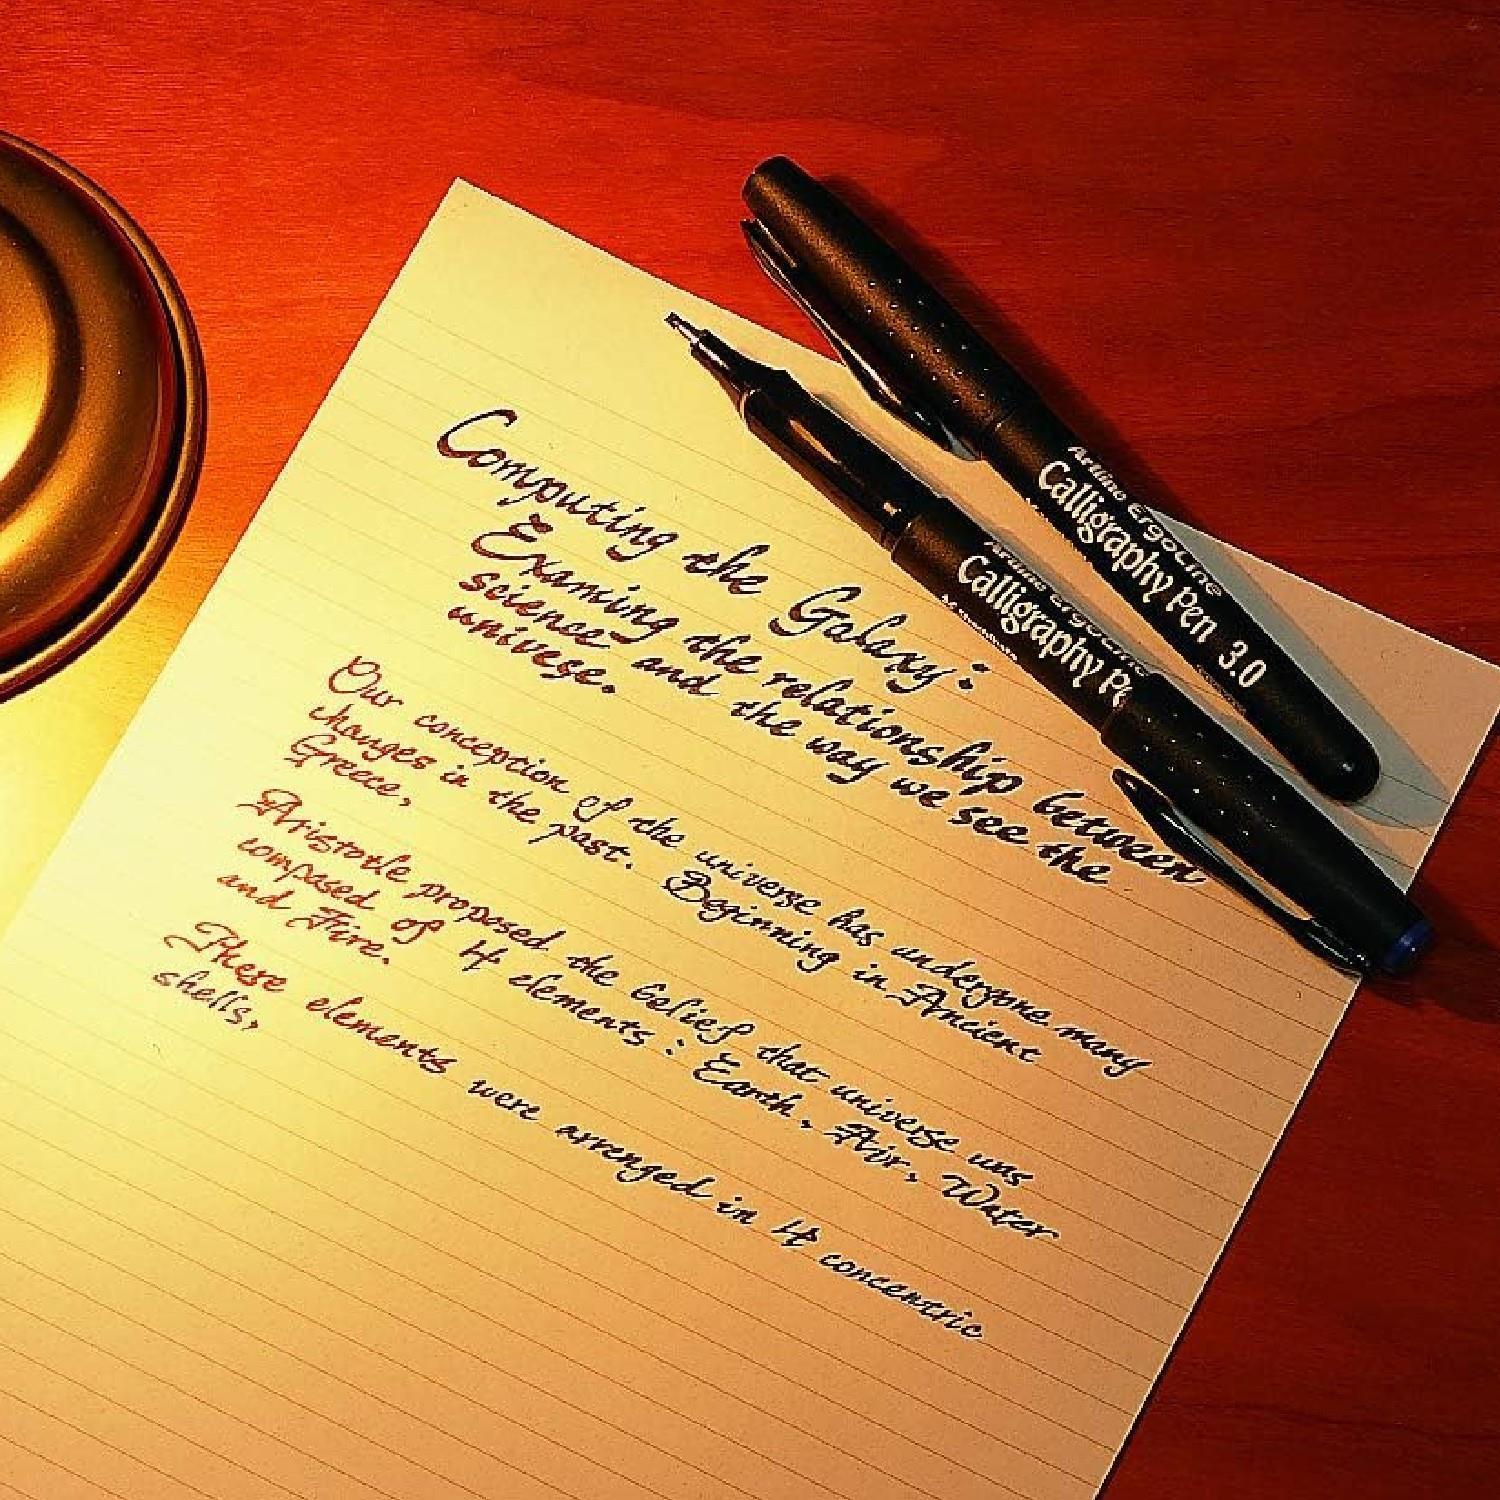 Computing the Galaxy:
Examing the relationship between
science and the way we see the
univese.
Our conception of the universe has undergone many
changes in the past. Beginning in Ancient
Greece,
Aristotle proposed the belief that universe was
composed of 4 elements: Earth, Air, Water
and Fire.
These elements were arrenged in 4 concentric
shells,
Artline ErgoLine
Calligraphy Pen 3.0
Artline ErgoLine
Calligraphy Pe